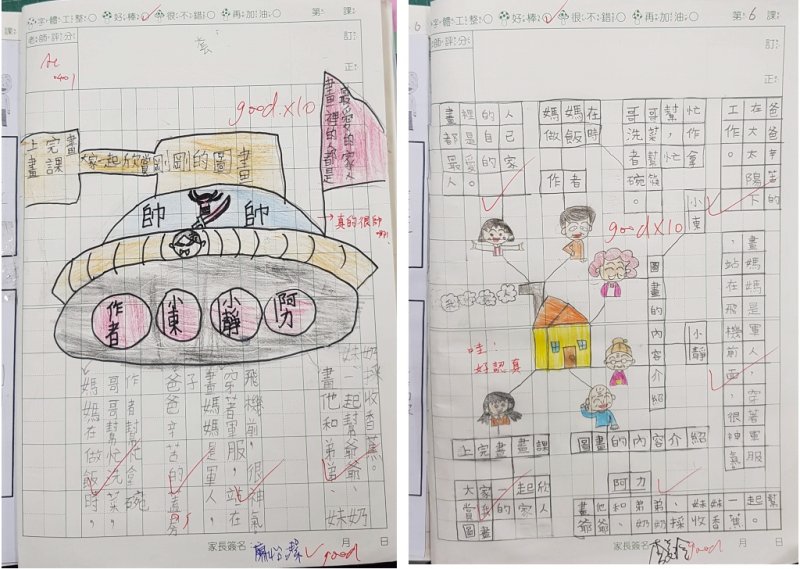 字體工整○ 好棒○ 很不錯○ 再加油○ 第 課
老師評分
訂正
good.x10
最愛的家人
畫裡的人都是
上完畫畫課
大家一起欣賞剛剛的圖畫
帥 帥
真的很帥
作者 小東 小靜 阿力
奶採收香蕉。
妹一起幫爺爺、
畫他和弟弟、妹奶
飛機前,很神氣
穿著軍服,站在
畫媽媽是軍人,
子
爸爸辛苦的
作者幫忙拿碗
哥哥幫忙洗菜,
媽媽在做飯時,
家長簽名: 月 日
good
字體工整○ 好棒○ 很不錯○ 再加油○ 第6課
老師評分
訂正
爸爸辛苦的
在大太陽下
工作。
小東
哥哥幫忙
洗菜,作
者幫忙拿
碗筷。
媽媽在
做飯時
作者
畫裡的人
都是自己
最愛的家
人。
good x10
畫媽媽是軍人,穿著軍服
,站在飛機前面,很神氣
小靜
圖畫的內容介紹
哇!
好認真
上完畫畫課
圖畫的內容介紹
大家一起欣
賞我的家人
圖畫
阿力
畫他和弟弟、妹妹一起幫
爺爺、奶奶採收香蕉。
家長簽名 月 日
good